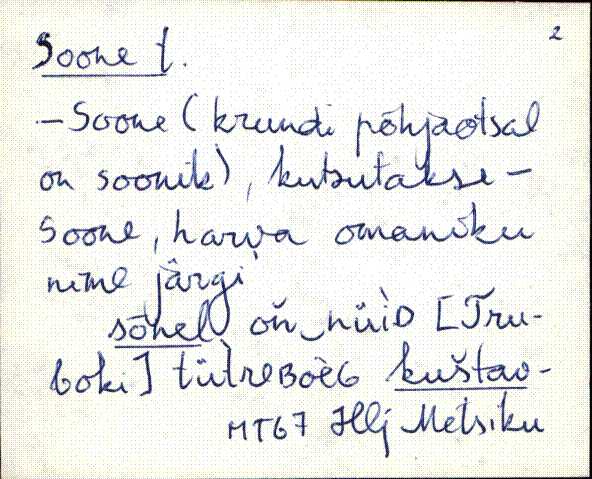 2
Soone t.
– Soone (krundi põhjaotsal
on soonik), kutsutakse –
Soone, harva omaniku
nime järgi
sōnel oň nüìD [Tru-
boki] tütreBoèG kuštav-
MT67 Hlj Metsiku